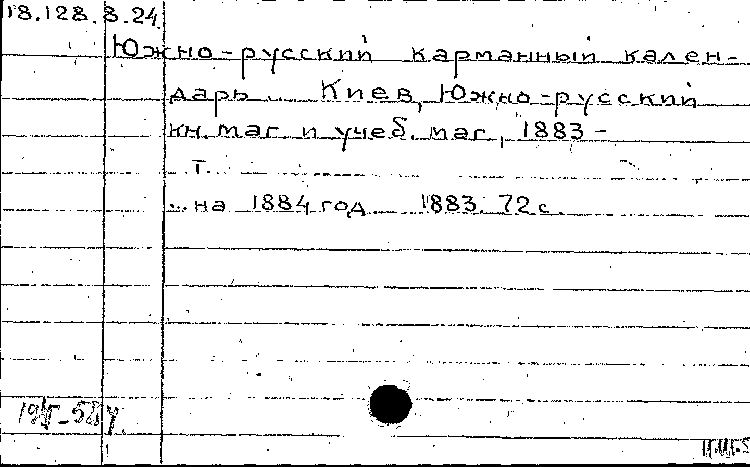 18.128.8.24.
Южно-русский карманный кален-
дарь... Киев, Южно-русский
кн. маг. и учеб. маг., 1883 -
т.
... на 1884 год. 1883. 72 с.